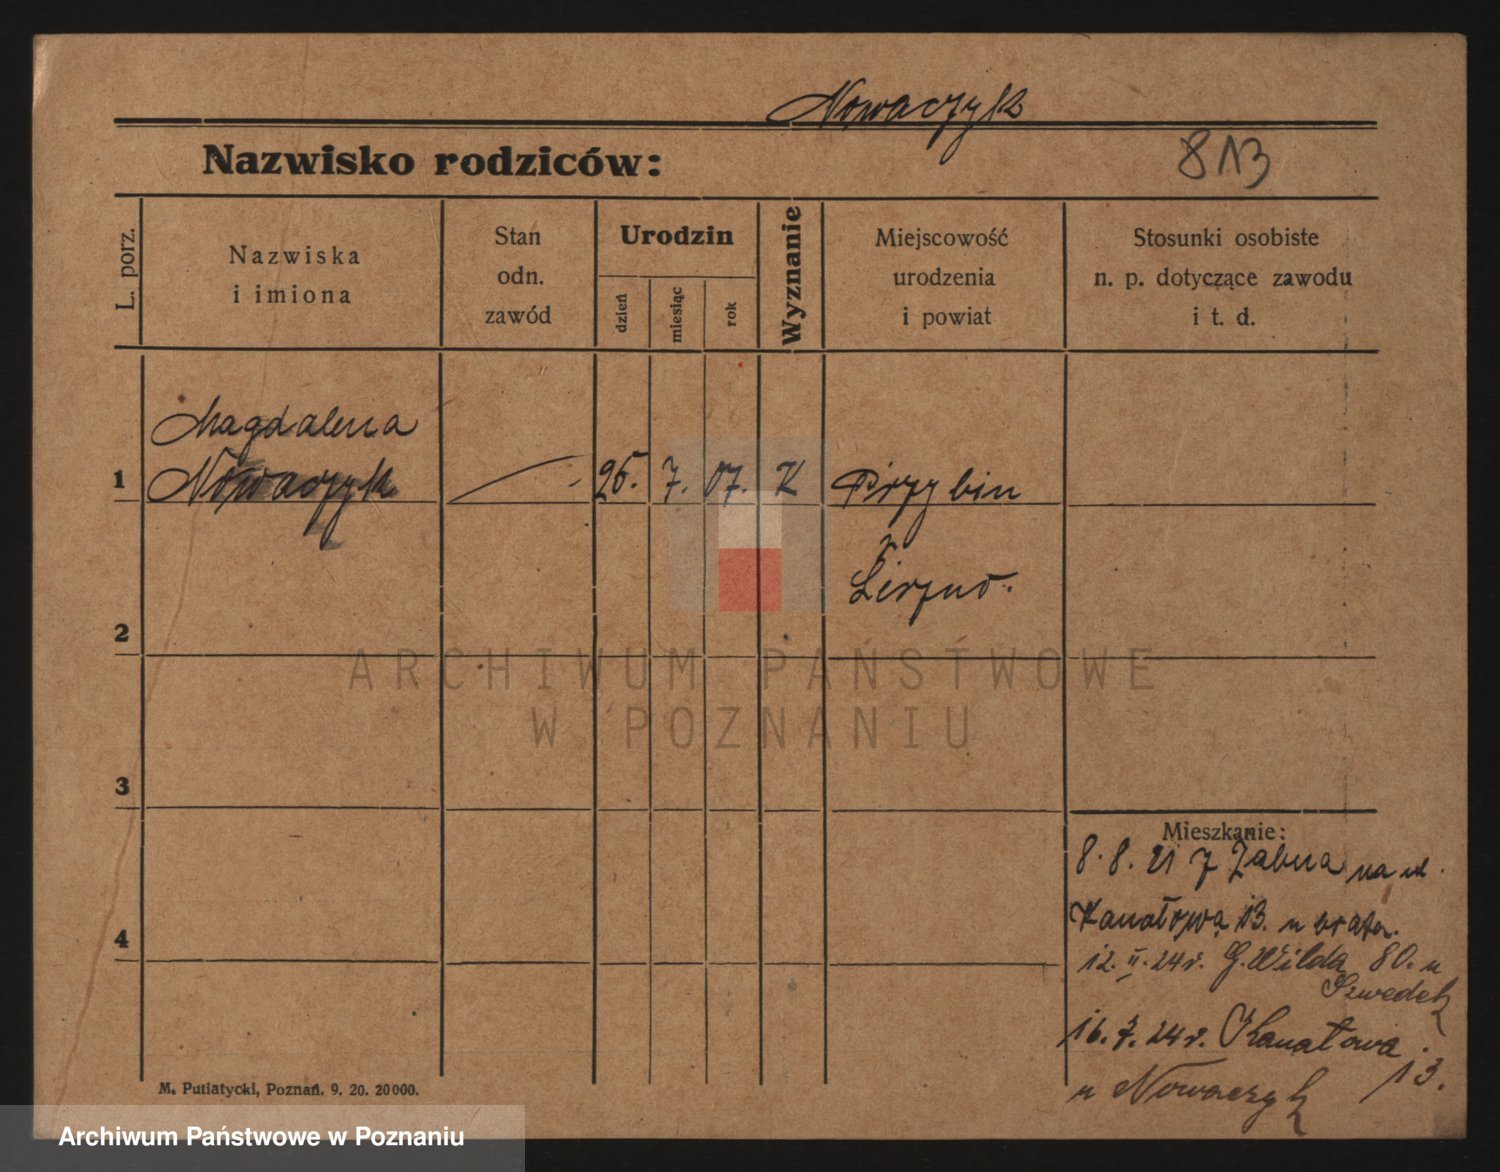 Nowaczyk
Nazwisko rodziców:
813
L. porz.
Nazwiska
i imiona
Stan
odn.
zawód
Urodzin
dzień
miesiąc
rok
Wyznanie
Miejscowość
urodzenia
i powiat
Stosunki osobiste
n. p. dotyczące zawodu
i t. d.
Magdalena
1 Nowaczyk 7. 07. K Przybin
2
ARCHIWUM PAŃSTWOWE
W POZNANIU
3
Mieszkanie:
8. 8. 21 z Żabna na ul.
Kanałową 13. u brata.
4
12. II. 24 r. G. Wilda 80. u
Szwedek
16. 7. 24 r. Kanałowa
13.
u Nowaczyk
M. Putiatycki, Poznań. 9. 20. 20000.
Archiwum Państwowe w Poznaniu